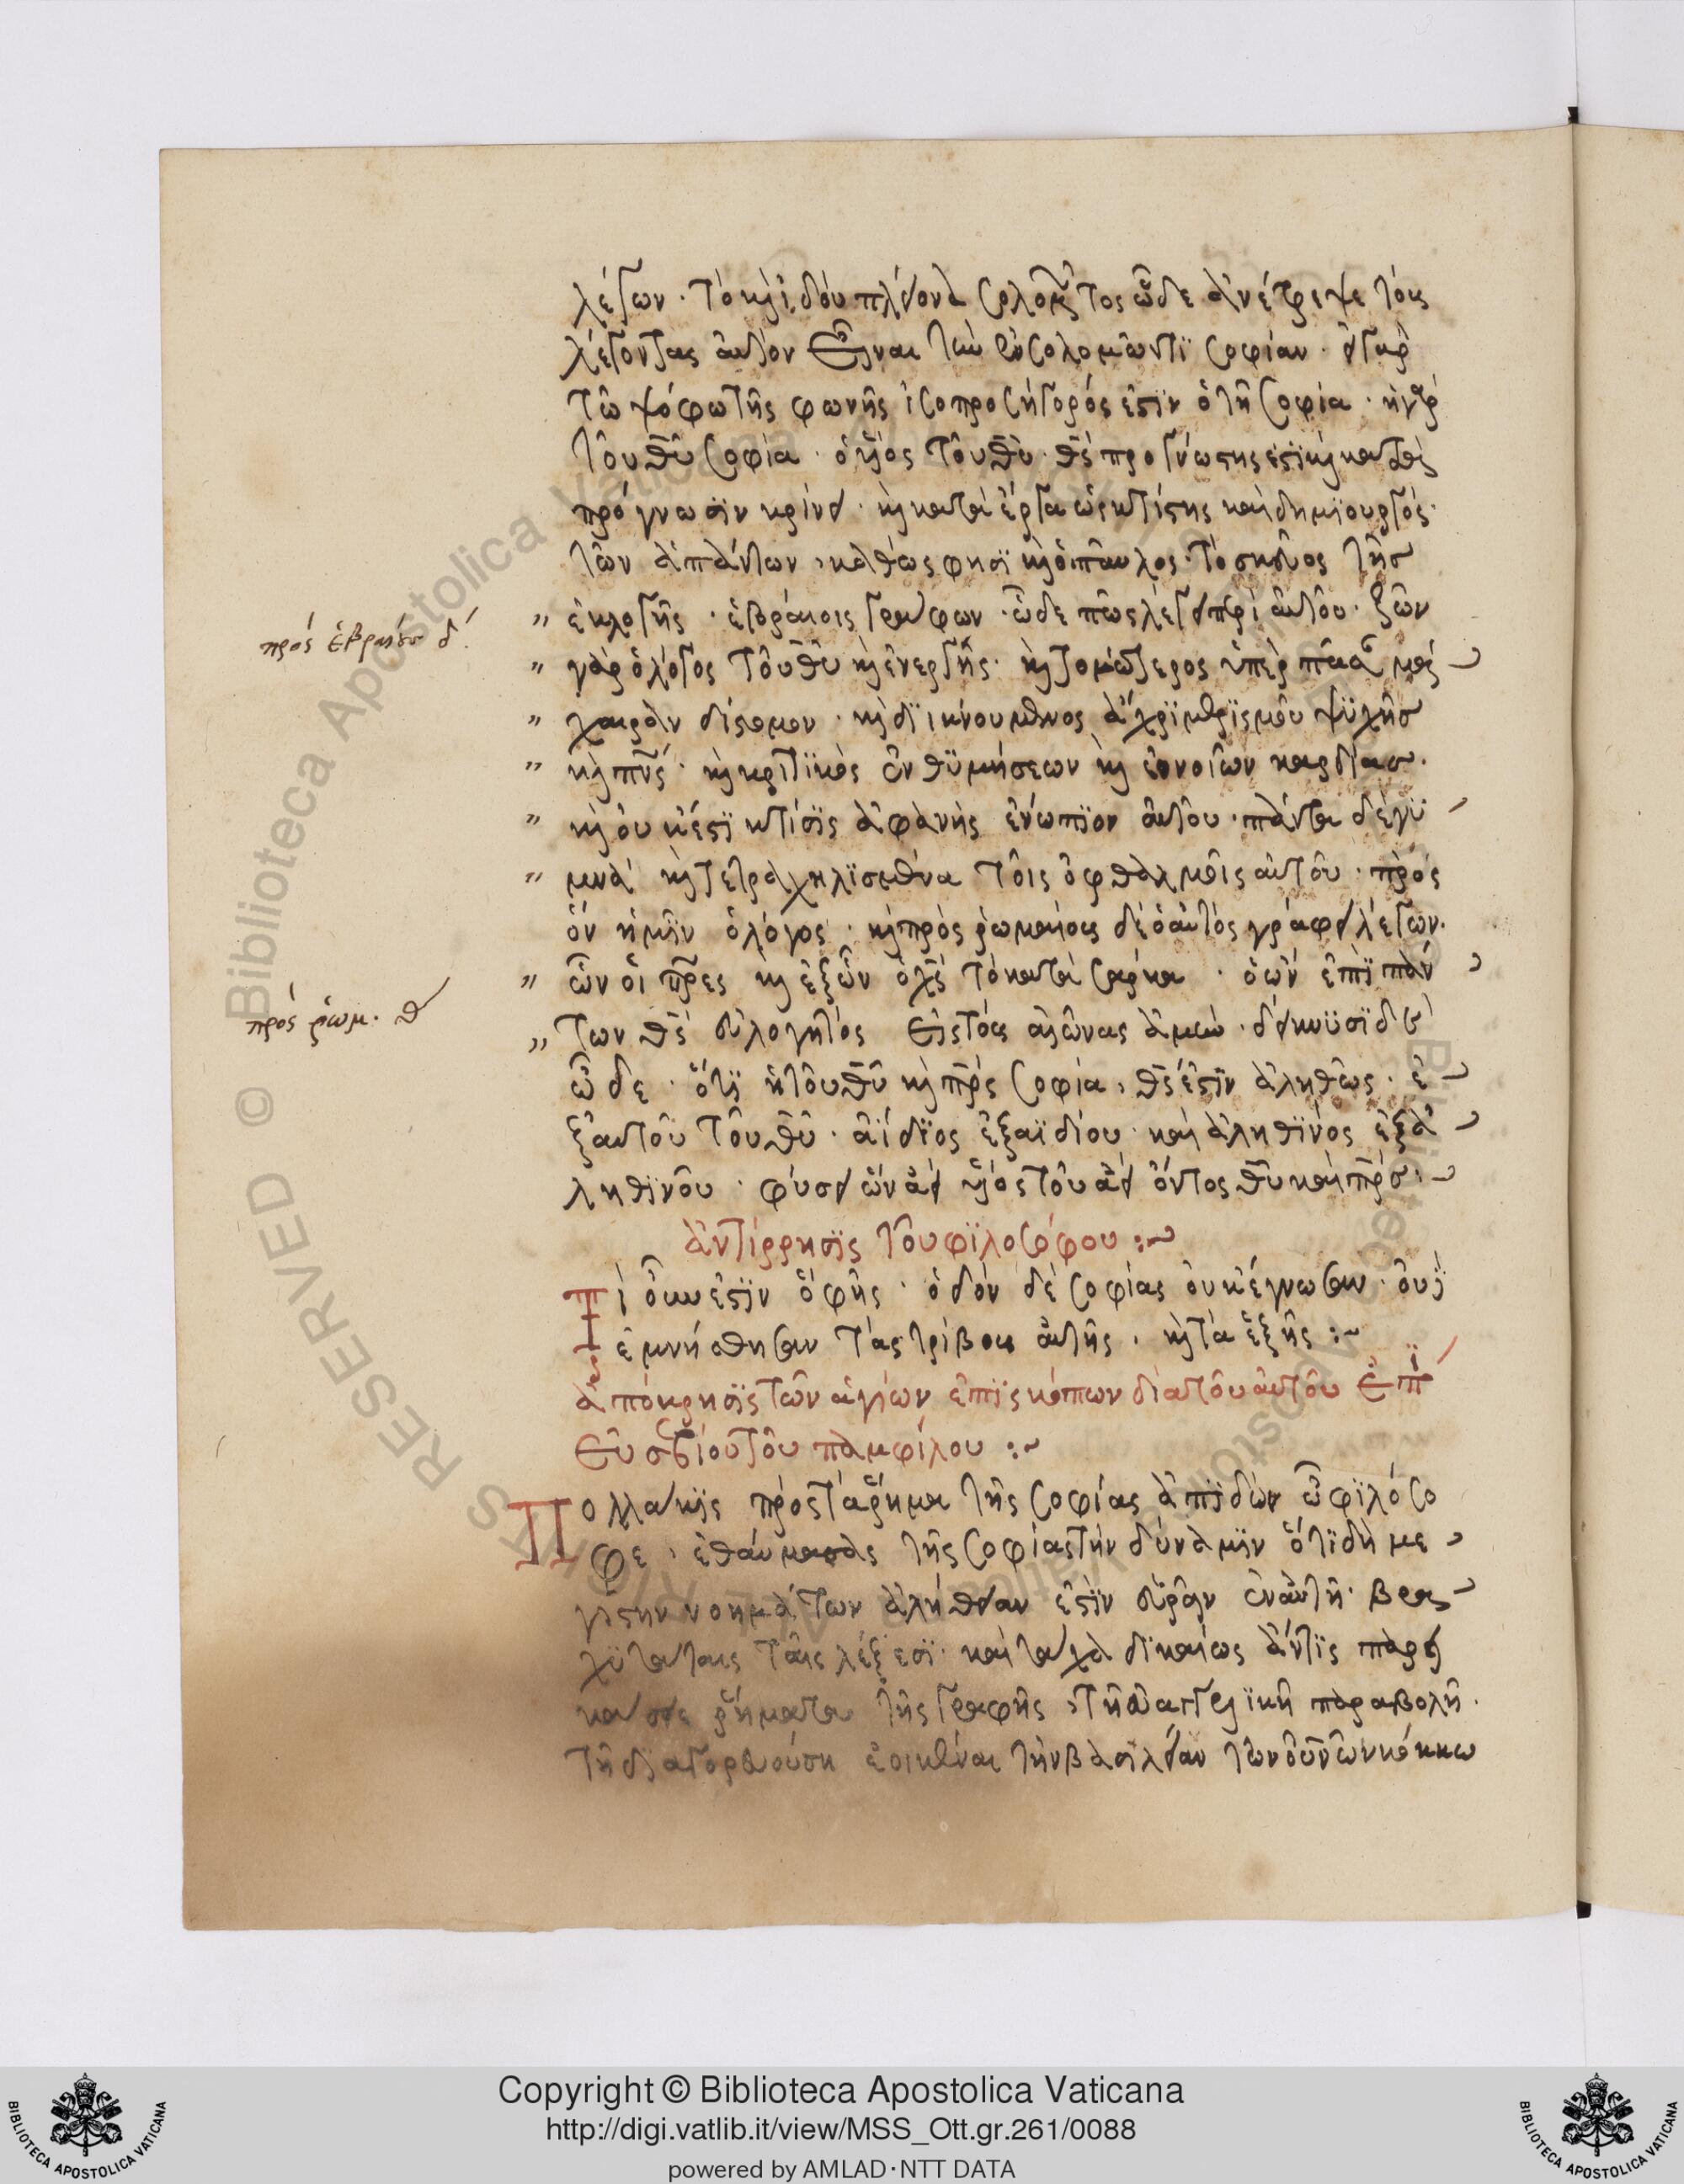 λέγων · τὸ καὶ ἰδοὺ πλείονα σολομῶντος ὧδε ἀνέτρεψε τοὺς
λέγοντας αὐτὸν εἶναι τὴν ἐν σολομῶντϊ σοφίαν · εἰ γὰρ
τῶ ψόφω τῆς φωνῆς ἰσοπροσήγορός ἐστϊν ὁ τῆ σοφία · ἡ γὰρ
τοῦ θῦ σοφία · ὁ υἱὸς τοῦ θῦ · θς προγνώστης ἐστὶ καὶ κατὰ
πρόγνωσϊν κρίνει · καὶ κατὰ ἔργα ὡς κτίστης καὶ δημϊουργός ·
τῶν ἁπάντων , καθώς φησϊ καὶ ὁ παῦλος · τὸ σκεῦος τῆς
πρὸς ἑβραίους δ΄
" ἐκλογῆς · ἑβραίοις γράφων · ὧδε πῶς λέγει περὶ αὐτοῦ · ζῶν
" γὰρ ὁ λόγος τοῦ θῦ καὶ ἐνεργὴς · καὶ τομώτερος ὑπὲρ πᾶσαν μά
" χαιραν δίστομον · καὶ δϊικνούμενος ἄχρϊ μερϊσμοῦ ψϋχῆς
" καὶ πνς · καὶ κριτϊκὸς ἐνθϋμήσεων καὶ ἐννοιῶν καρδίας ·
" καὶ οὐκ ἔστϊ κτίσϊς ἀφανὴς ἐνώπϊον αὐτοῦ · πάντα δὲ γϋ
" μνὰ καὶ τετραχηλϊσμένα τοῖς ὀφθαλμοῖς αὐτοῦ · πρὸς
ὃν ἡμῖν ὁ λόγος · καὶ πρὸς ῥωμαίους δὲ ὁ αὐτὸς γράφει λέγων ·
" ὧν οἱ πρες καὶ ἐξ ὧν ὁ χς τὸ κατὰ σάρκα · ὁ ὢν ἐπὶ πάν
πρὸς ῥωμ. θ
" των θς εὐλογητὸς εἰς τοὺς αἰῶνας ἀμήν · δείκνϋσϊ δὲ
ὧδε · ὅτϊ ἡ τοῦ θῦ καὶ πρς σοφία , θς ἐστϊν ἀληθῶς · ἐ
ξ αὐτοῦ τοῦ θῦ · ἀΐδϊος ἐξ αϊδίου · καὶ ἀληθϊνὸς ἐξ ἀ
ληθϊνοῦ · φύσει ὢν ἀεὶ υἱὸς τοῦ ἀεὶ ὄντος θῦ καὶ πρς ·
ἀντίρρησϊς τοῦ φϊλοσόφου :~
Τί οὖν ἐστϊν ὃ φῆς · ὁδὸν δὲ σοφίας οὐκ ἔγνωσαν · οὐδὲ
ἐμνήσθησαν τὰς τρίβους αὐτῆς · καὶ τὰ ἑξῆς :~
ἀπόκρησϊς τῶν ἁγίων ἐπϊσκόπων διὰ τοῦ αὐτοῦ ἐπϊ
εὐσεβίου τοῦ παμφίλου :~
Πολλάκϊς πρὸς τὰ ῥήματα τῆς σοφίας ἀπϊδὼν ὦ φϊλόσο
φε , ἐθαύμασας τῆς σοφίας τὴν δύναμϊν ὅτϊ δὴ με
γίστην νοημάτων ἀλήθειαν ἐστϊν εὑρεῖν ἐν αὐτῆ · βρα
χϋτάταις ταῖς λέξεσϊ · καὶ τάχα δϊκαίως ἄν τϊς παρει
κάσειε ῥήματα τῆς γραφῆς , τῆ εὐαγγελϊκῆ παραβολῆ ·
τῆ διαγορευούση ἐοικέναι τὴν βασϊλείαν τῶν οὐνῶν κόκκω